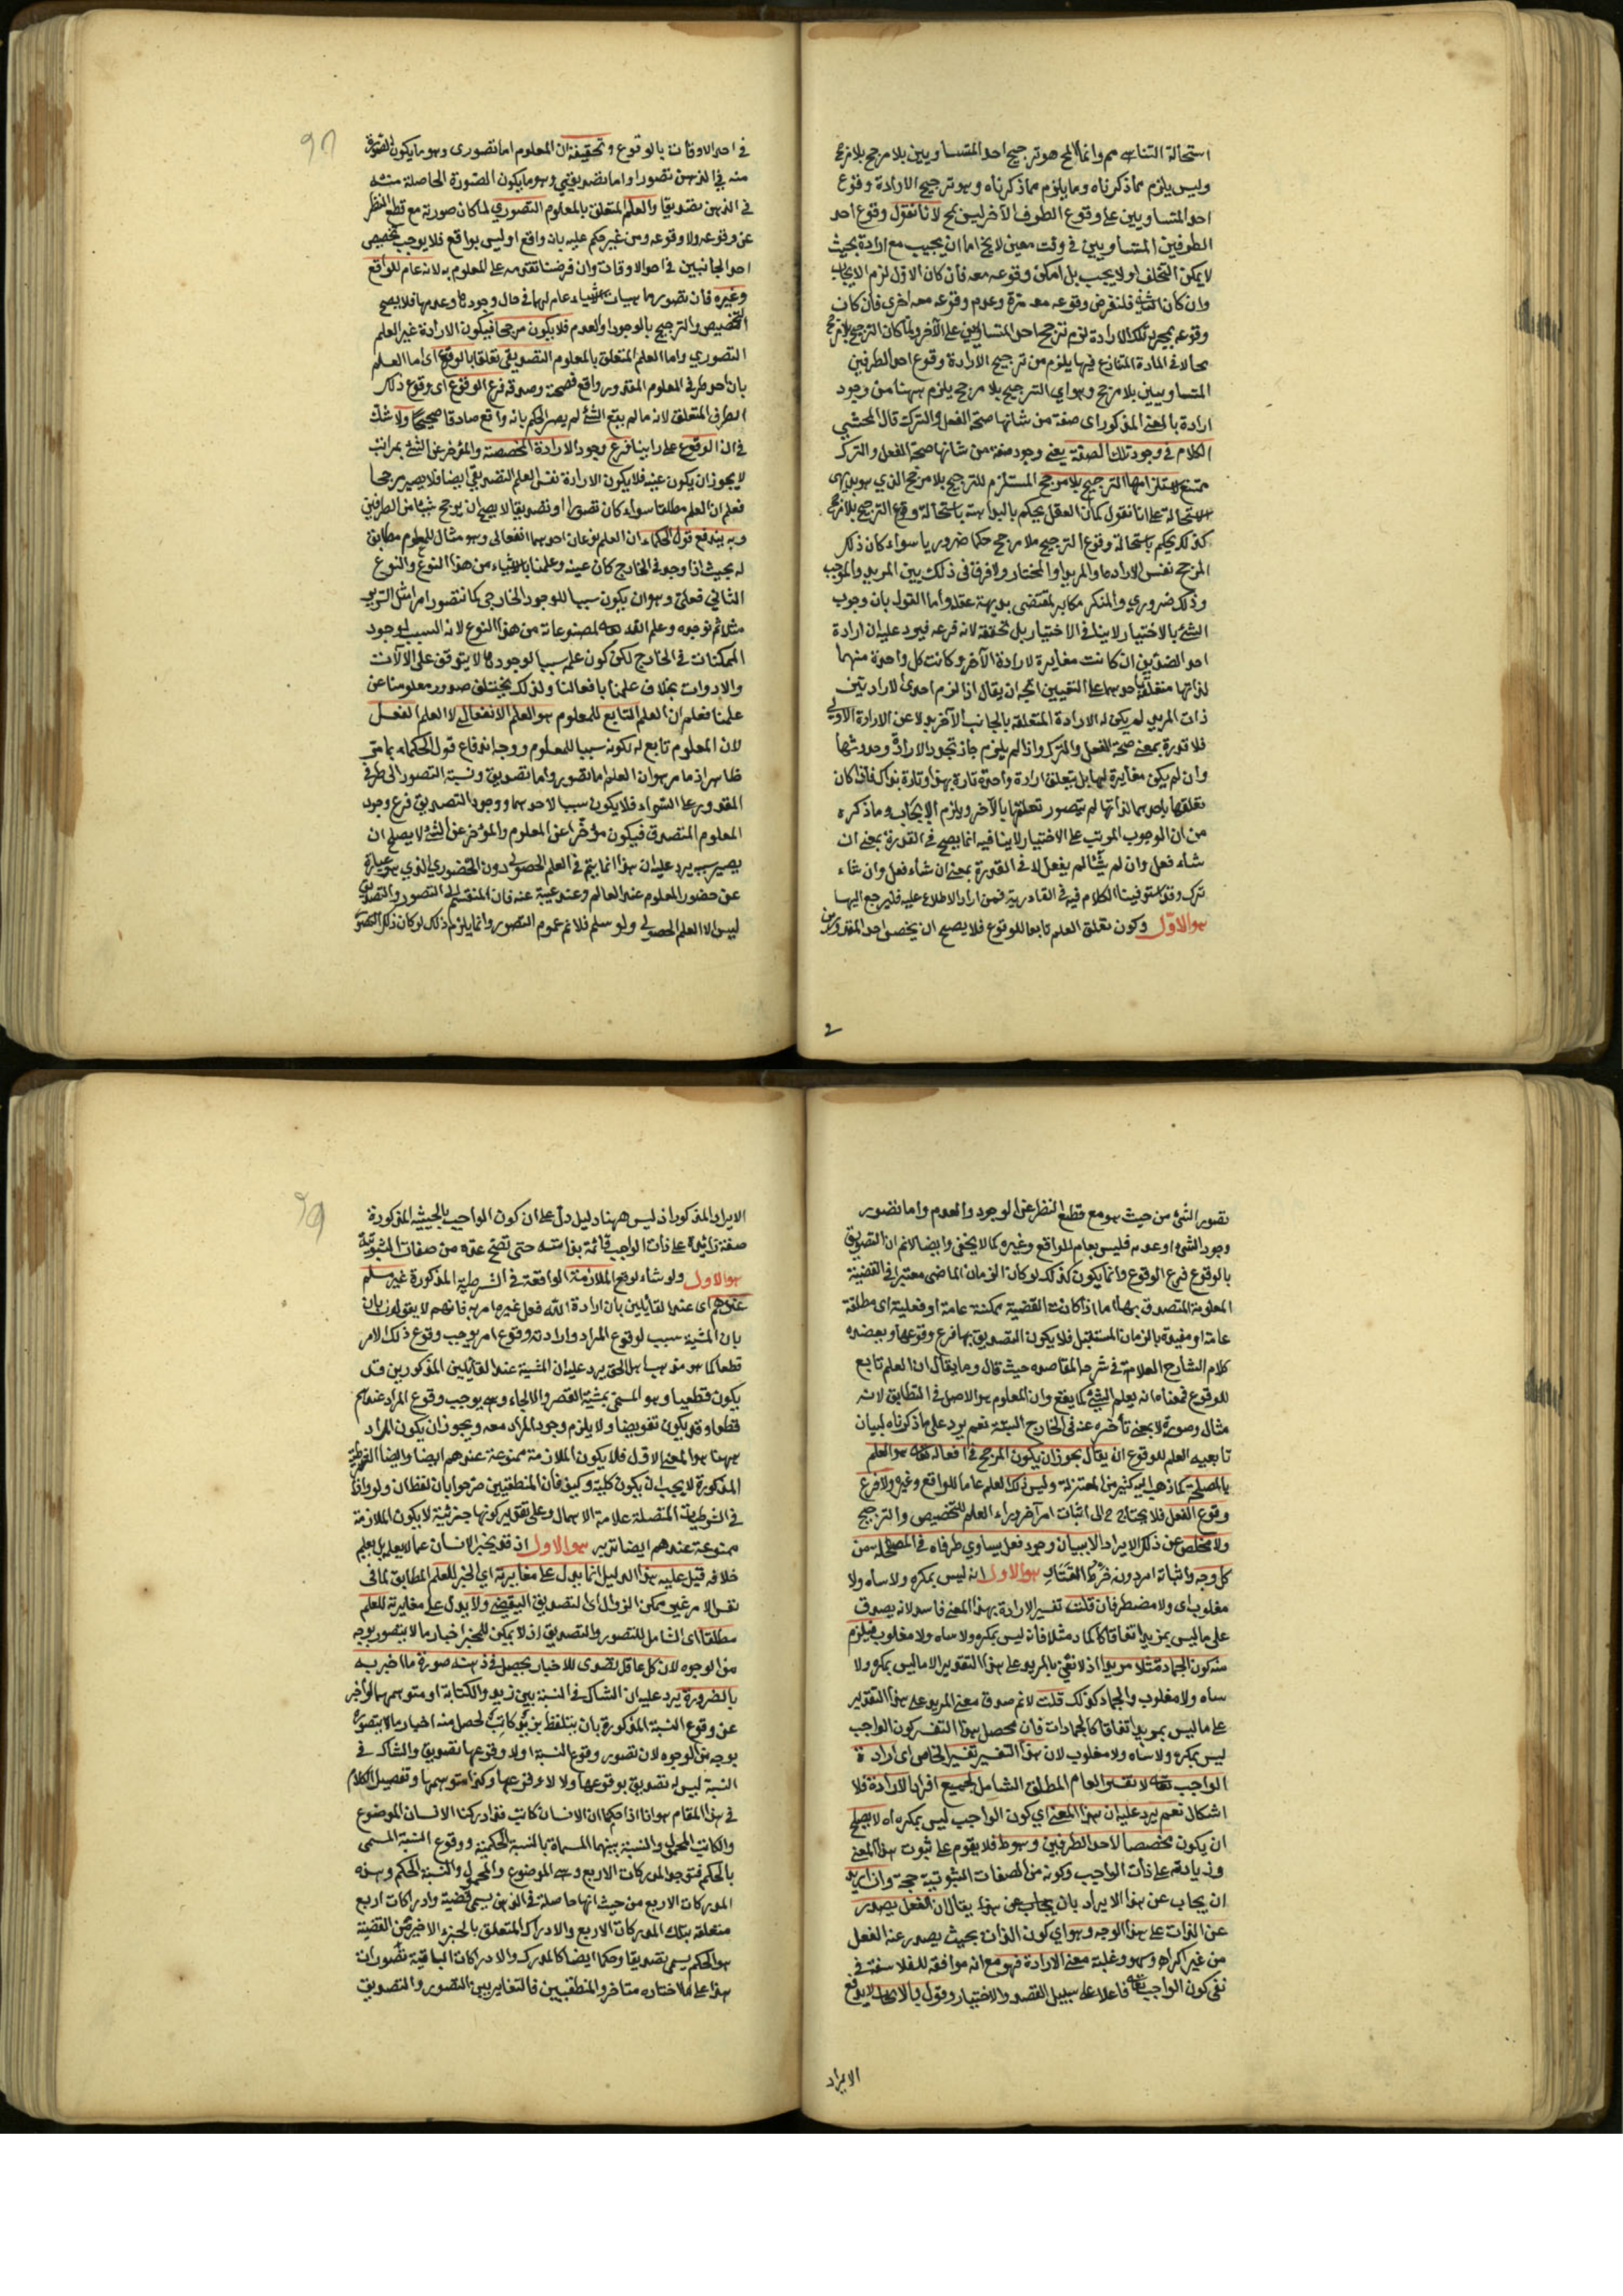 استحالة التناسه مم وانما المح هو ترجيح احد المتساويين بلا مرجح بلا مرجح
وليس يلزم مما ذكرناه وما يلزم مما ذكرناه وهو ترجيح الارادة وقوع
احد المتساويين على وقوع الطرف الآخر ليس بمح لانا نقول وقوع احد
الطرفين المتساويين في وقت معين لا يخ اما ان يجب مع ارادة بحيث
لا يمكن التخلف او لا يجب بل امكن وقوعه معه فان كان الاول لزم الايجاب
وان كان الثاني فلنفرض وقوعه معه مرة وعدم وقوعه معه اخرى فان كان
وقوعه بمجرد تلك الارادة لزم ترجيح احد المتساويين على الآخر ولما كان الترجيح بلا مرجح
محالا في المادة المتنازع فيها يلزم من ترجيح الارادة وقوع احد الطرفين
المتساويين بلا مرجح وهو اي الترجيح بلا مرجح يلزم ههنا من وجود
ارادة بالمعنى المذكور اى صفة من شانها صحة الفعل والترك قال المحشي
الكلام في وجود تلك الصفة يعني وجود صفة من شانها صحة الفعل والترك
ممتنع لاستلزامها الترجيح بلا مرجح المستلزم للترجح بلا مرجح الذي هو بديهى
الاستحالة على انا نقول كما ان العقل يحكم بالبداهة باستحالة وقوع الترجح بلا مرجح
كذلك يحكم باستحالة وقوع الترجيح بلا مرجح حكما ضروريا سواء كان ذلك
المرجح نفس الارادة او المريد او المختار ولا فرق في ذلك بين المريد والموجب
وذلك ضروري والمنكر مكابر لمقتضى بديهة عقله واما القول بان وجوب
الشئ بالاختيار لا ينافي الاختيار بل تحققه لانه فرعه فيرد عليه ان ارادة
احد الضدين ان كانت مغايرة لارادة الآخر وكانت كل واحدة منهما
لذاتها متعلقة باحدهما على التعيين اتجه ان يقال اذا لزم احدى الارادتين
ذات المريد لم يكن له الارادة المتعلقة بالجانب الآخر بدلا عن الارادة الاولى
فلا قدرة بمعنى صحة الفعل والترك واذا لم يلزم جاز تجدد الارادة وحدوثها
وان لم يكن مغايرة لها بل يتعلق ارادة واحدة تارة بهذا وتارة بذاك فاذا كان
تعلقها باحدهما لذاتها لم يتصور تعلقها بالآخر ويلزم الايجاب وما ذكره
من ان الوجوب المرتب على الاختيار لا ينافيه انما يصح في القدرة بمعنى ان
شاء فعل وان لم يشأ لم يفعل لا في القدرة بمعنى ان شاء فعل وان شاء
ترك وقد استوفينا الكلام فيه في القادرية فمن اراد الاطلاع عليه فليرجع اليها
هو الاوّل وكون تعلق العلم تابعا للوقوع فلا يصح ان يخصص احد المقدورين
في احد الاوقات بالوقوع وتحقيقه ان المعلوم اما تصورى وهو ما يكون الصورة
منه في الذهن تصورا واما تصديقي وهو ما يكون الصورة الحاصلة منه
في الذهن تصديقا والعلم المتعلق بالمعلوم التصوري لما كان صورية مع قطع النظر
عن وقوعه ولا وقوعه ومن غير حكم عليه بانه واقع او ليس بواقع فلا يوجب تخصيص
احد الجانبين في احد الاوقات وان فرضنا تقدمه على المعلوم به لانه عام للواقع
وغيره فان تصور ماهيات الاشياء عام لها في حال وجودها وعدمها فلا يصح
التخصيص والترجيح بالوجود او العدم فلا يكون مرجحا فيكون الارادة غير العلم
التصوري واما العلم المتعلق بالمعلوم التصديقي تعلقا بالوقوع اى اما العلم
بان احد طرفي المعلوم المقدور واقع فصحة وصدقه فرع الوقوع اى وقوع ذلك
الطرف المتعلق لانه ما لم يقع الشئ لم يصر الحكم بانه واقع صادقا صحيحا ولا شك
في ان الوقوع على راينا فرع وجود الارادة المخصصة والمؤخر عن الشئ بمراتب
لا يجوز ان يكون عينه فلا يكون الارادة نفس العلم التصديقي ايضا فلا يصير مرجحا
فعلم ان العلم مطلقا سواء كان تصورا او تصديقا لا يصح ان يرجح شيئا من الطرفين
وبه يندفع قول الحكماء ان العلم نوعان احدهما انفعالى وهو مثال للمعلوم مطابق
له بحيث اذا وجد في الخارج كان عينه وعلمنا بالاشياء من هذا النوع والنوع
الثاني فعلى وهو ان يكون سببا للوجود الخارجي كما نتصور امرا مثل السرير
مثلا ثم نوجده وعلم الله تعالى لمصنوعاته من هذا النوع لانه السبب لوجود
الممكنات في الخارج لكن كون علمه سببا لوجودها لا يتوقف على الآلات
والادوات بخلاف علمنا بافعالنا ولذلك يختلف صدور معلومنا عن
علمنا فعلم ان العلم التابع للمعلوم هو العلم الانفعالى لا العلم الفعلى
لان المعلوم تابع له لكونه سببا للمعلوم ووجه اندفاع قول الحكماء بما مر
ظاهر اذ ما مر هو ان العلم اما تصور واما تصديق ونسبة التصور الى طرفي
المقدور على السواء فلا يكون سببا لاحدهما ووجود التصديق فرع وجود
المعلوم المتصدق فيكون مؤخرا عن المعلوم والمؤخر عن الشئ لا يصلح ان
يصير سببه يرد عليه ان هذا انما يتم في العلم الحصولى دون الحضوري الذي هو عبارة
عن حضور المعلوم عند العالم وعند غيبة عنه فان المنقسم الى التصور والتصديق
ليس الا العلم الحصولى ولو سلم فلا نم عموم التصور وانما يلزم ذلك لو كان ذلك التصور
تصور الشئ من حيث هو مع قطع النظر عن الوجود والعدم واما تصور
وجود الشئ او عدمه فليس بعام للواقع وغيره كما لا يخفى وايضا لا نم ان التصديق
بالوقوع فرع الوقوع وانما يكون كذلك لو كان الزمان الماضى معتبرا في القضية
المعلومة المتصدق بها اما اذا كانت القضية ممكنة عامة او فعلية اى مطلقة
عامة او مقيدة بالزمان المستقبل فلا يكون التصديق بها فرع وقوعها ويعضده
كلام الشارح العلامة في شرح المقاصد حيث قال وما يقال ان العلم تابع
للوقوع فمعناه انه يعلم الشئ كما يقع وان المعلوم هو الاصل في التطابق لانه
مثال وصورة لا بمعنى تأخره عنه في الخارج البتة نعم يرد على ما ذكرناه لبيان
تابعية العلم للوقوع ان يقال يجوز ان يكون المرجح في افعاله تعالى هو العلم
بالمصلحة كما ذهب اليه كثير من المعتزلة وليس ذلك العلم عاما للواقع وغيره ولا فرع
وقوع الفعل فلا يحتاج الى اثبات امر آخر وراء العلم للتخصيص والترجيح
ولا مخلص عن ذلك الايراد الا ببيان وجود فعل يساوي طرفاه في المصلحة من
كل وجه واثباته امر دونه خرط القتاد هو الاول انه ليس بمكره ولا ساه ولا
مغلوب اى ولا مضطر فان قلت تفسير الارادة بهذا المعنى فاسد لانه يصدق
على ما ليس بمريد اتفاقا كالجماد مثلا فانه ليس بمكره ولا ساه ولا مغلوب فيلزم
منه كون الجماد مثلا مريدا اذ لا نعني بالمريد على هذا التقدير الا ما ليس بمكره ولا
ساه ولا مغلوب والجماد كذلك قلت لا نم صدق معنى المريد على هذا التقدير
على ما ليس بمريد اتفاقا كالجمادات فان محصل هذا التفسير كون الواجب
ليس بمكره ولا ساه ولا مغلوب لان هذا التفسير تفسير الخاص اى ارادة
الواجب تعالى لا تفسير العام المطلق الشامل لجميع افراد الارادة فلا
اشكال نعم يرد عليه ان هذا المعنى اي كون الواجب ليس بمكره اه لا يصلح
ان يكون مخصصا لاحد الطرفين وهو ط فلا يقوم على ثبوت هذا المعنى
وزيادته على ذات الواجب وكونه من الصفات الثبوتية حجة وان اريد
ان يجاب عن هذا الايراد بان يجاب عن هذا يقال ان الفعل يصدر
عن الذات على هذا الوجه وهو اي كون الذات بحيث يصدر عنه الفعل
من غير اكراه وسهو وغلبة معنى الارادة فهو مع انه موافقة للفلاسفة في
نفى كون الواجب تعالى فاعلا على سبيل القصد والاختيار وقول بالايجاب لا يدفع
الايراد
الايراد المذكور اذ ليس ههنا دليل دل على ان كون الواجب بالحيثية المذكورة
صفة زائدة على ذات الواجب قائمة بذاته حتى تصح عده من صفات الثبوتية
هو الاول ولو شاء لوقع الملازمة الواقعة في الشرطية المذكورة غير مسلم
عندهم اى عند القائلين بان ارادة الله فعل غيره امر به فانهم لا يقولون بان
بان المشية سبب لوقوع المراد وارادته وقوع امر يوجب وقوع ذلك الامر
قطعا كما هو مذهب اهل الحق يرد عليه ان المشية عند القائلين المذكورين قد
يكون قطعيا وهو المسمى بمشية القصر والالجاء وهى يوجب وقوع المراد عندهم
قطعا وقد يكون تفويضا ولا يلزم وجود المراد معه ويجوز ان يكون المراد
ههنا هو المعنى الاول فلا يكون الملازمة ممنوعة عندهم ايضا وايضا الشرطية
المذكورة لا يجب ان يكون كلية وكيف فان المنطقيين صرحوا بان لفظ ان ولو واذا
في الشرطية المتصلة علامة الاهمال وعلى تقدير كونها جزئية لا يكون الملازمة
ممنوعة عندهم ايضا تدبر هو الاول اذ قد يخبر الانسان عما لا يعلم بل يعلم
خلافه قيل عليه هذا الدليل انما يدل على مغايرته اي الخبر للعلم المطابق لما في
نفس الامر غير ممكن الزوال اى لتصديق اليقيني ولا يدل على مغايرته للعلم
مطلقا اى الشامل للتصور والتصديق اذ لا يمكن للمخبر اخبار ما لا يتصور بوجه
من الوجوه لان كل عاقل تصدى للاخبار يحصل في ذهنه صورة ما اخبر به
بالضرورة يرد عليه ان الشاك في النسبة بين زيد والكتابة او متوهمهما لو اخبر
عن وقوع النسبة المذكورة بان يتلفظ بزيد كاتب لحصل منه اخبار ما لا يتصوره
بوجه من الوجوه لان تصور وقوع النسبة او لا وقوعها تصديق والشاك في
النسبة ليس له تصديق بوقوعها ولا لا وقوعها وكذا متوهمها وتفصيل الكلام
في هذا المقام هو انا اذا حكمنا ان الانسان كاتب فقد ادركنا الانسان الموضوع
والكاتب المحمول والنسبة بينهما المسماة بالنسبة الحكمية ووقوع النسبة المسمى
بالحكم فتوجد المدركات الاربع وهى الموضوع والمحمول والنسبة والحكم وهذه
المدركات الاربع من حيث انها حاصلة في الذهن يسمى قضية وادراكات اربع
متعلقة بتلك المدركات الاربع والادراك المتعلق بالجزء الاخير من القضية
هو الحكم يسمى تصديقا وحكما ايضا كالمدرك والادراكات الباقية تصورات
هذا على ما اختاره متاخروا المنطقيين فالتغاير بين التصور والتصديق